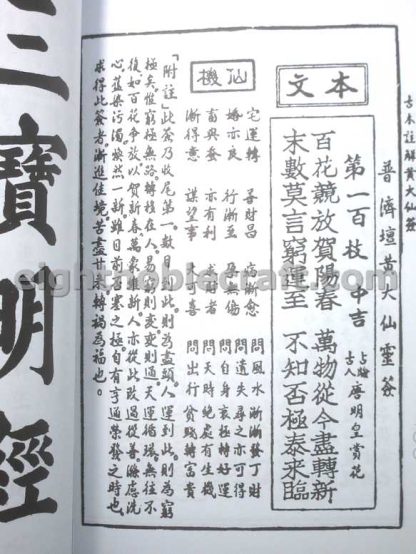 古本註解黃大仙簽
普濟壇黃大仙靈簽
第一百枝 中吉
占驗古人 唐明皇賞花
本文
百花競放賀陽春 萬物從今盡轉新
末數莫言窮運至 不知否極泰來臨
仙機
宅運轉 善財昌
婚亦良 行漸至
畜與蚕 亦有利
漸得意 謀望事
病漸愈
孕無傷
求財者
大可喜
問風水 漸漸發丁財
問遺失 尋之亦可得
問自身 衰極轉好運
問天時 絕處有生機
問出行 貧賤轉富貴
「附註」此簽乃收尾第一數目到此則為盡頭人運到此則為窮
極矣惟窮極無路轉移在人易窮則變變則通天運循環無往不
復如百花爭放以賀新春萬象維新人亦從此改過從善滌慮洗
心藍染污濁煥然一新雖目前否塞之極自有亨通榮發之時也
求得此簽者漸進佳境苦盡甘來轉禍為福也。
三寶明經
eighttablecraft.com